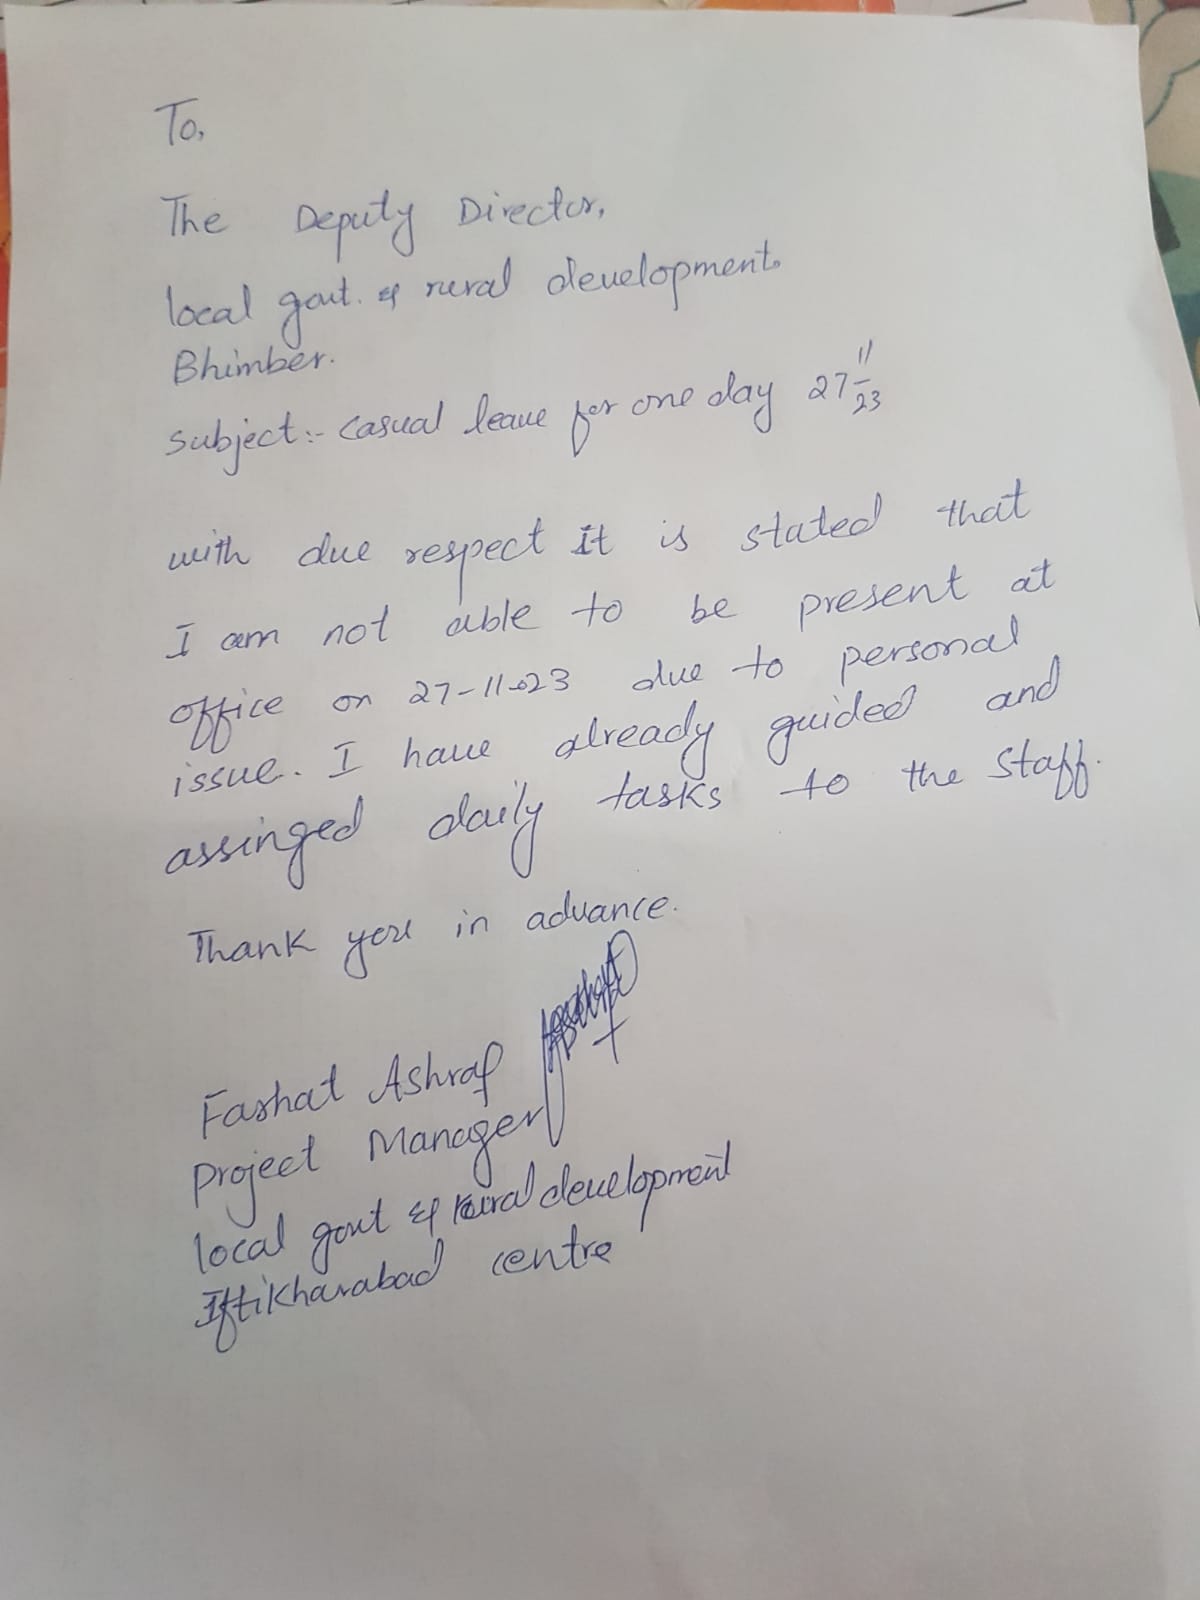 To,
The Deputy Director,
local govt. & rural development.
Bhimber.
Subject:- Casual leave for one day 27 11/23
with due respect It is stated that
I am not able to be present at
office on 27-11-023 due to personal
issue. I have already guided and
assinged daily tasks to the staff.
Thank you in advance.
Farhat Ashraf
Project Manager
local govt & Rural development
Iftikharabad centre